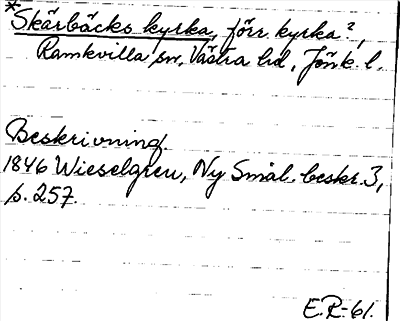 *Skärbäcks kyrka, förr. kyrka?,
Ramkvilla sn, Västra hd, Jönk. l.
Beskrivning.
1846 Wieselgren, Ny Smål. beskr. 3,
s. 257.
E.R-61.